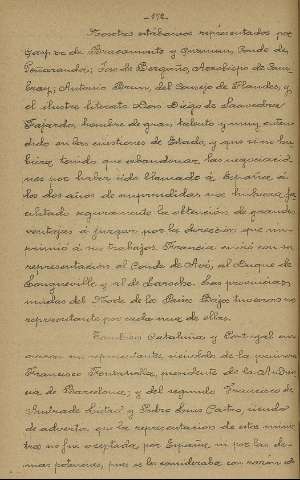 -172-
Nosotros estábamos representados por
Gaspar de Bracamonte y Guzman, Conde de
Peñaranda; José de Bergaño, Arzobispo de Cam-
bray; Antonio Brun, del Consejo de Flandes, y
el ilustre literato Don Diego de Saavedra
Fajardo, hombre de gran talento y muy enten-
dido en las cuestiones de Estado, y que si no hu-
biera tenido que abandonar las negociacio-
nes por haber sido llamado á España á
los dos años de emprendidas nos hubiera fa-
cilitado seguramente la obtención de grandes
ventajas á juzgar por la dirección que im-
primió á sus trabajos. Francia envió con su
representación al Conde de Avó, al Duque de
Longueville y al de Saroche. Las provincias
unidas del Norte de los Paises Bajos tuvieron un
representante por cada una de ellas.
Tambien Cataluña y Portugal en-
viaron un representante siendolo de la primera
Francisco Fontanella, presidente de la Audien-
cia de Barcelona; y del segundo Francisco de
Andrade Leitad y Pedro Luis Castro, siendo
de advertir que la representacion de estos minis-
tros no fue aceptada por España ni por las de-
mas potencias, pues se les consideraba con razón de